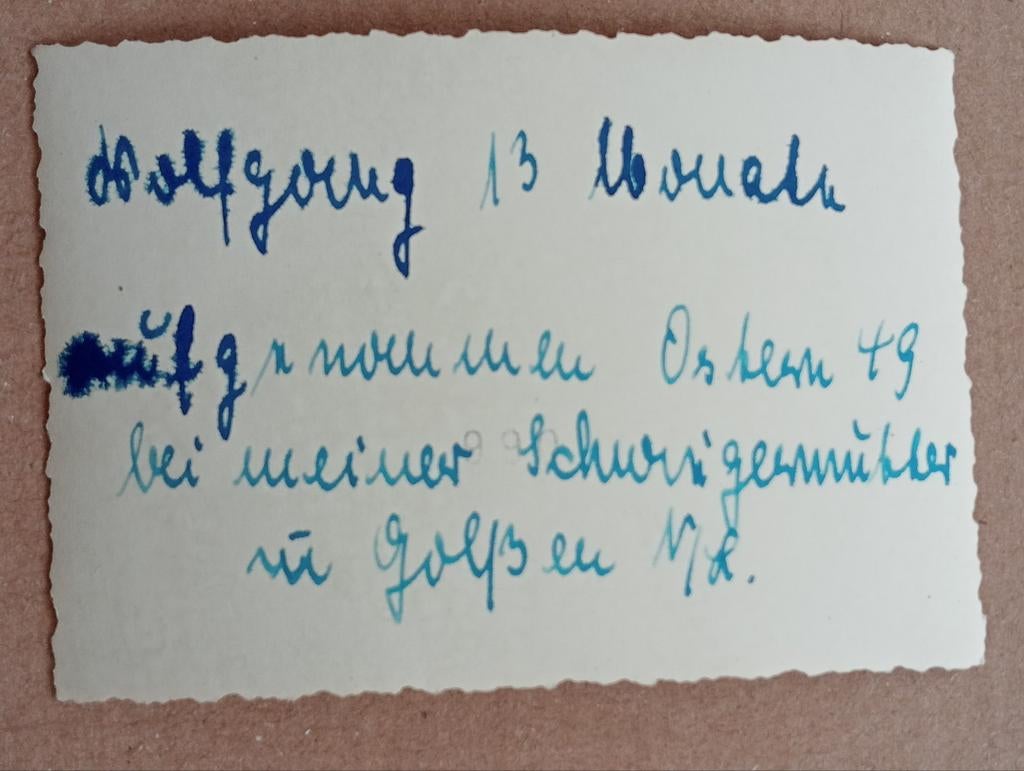 Wolfgang 13 Monate
aufgenommen Ostern 49
bei meiner Schwiegermutter
in Golßen N/L.